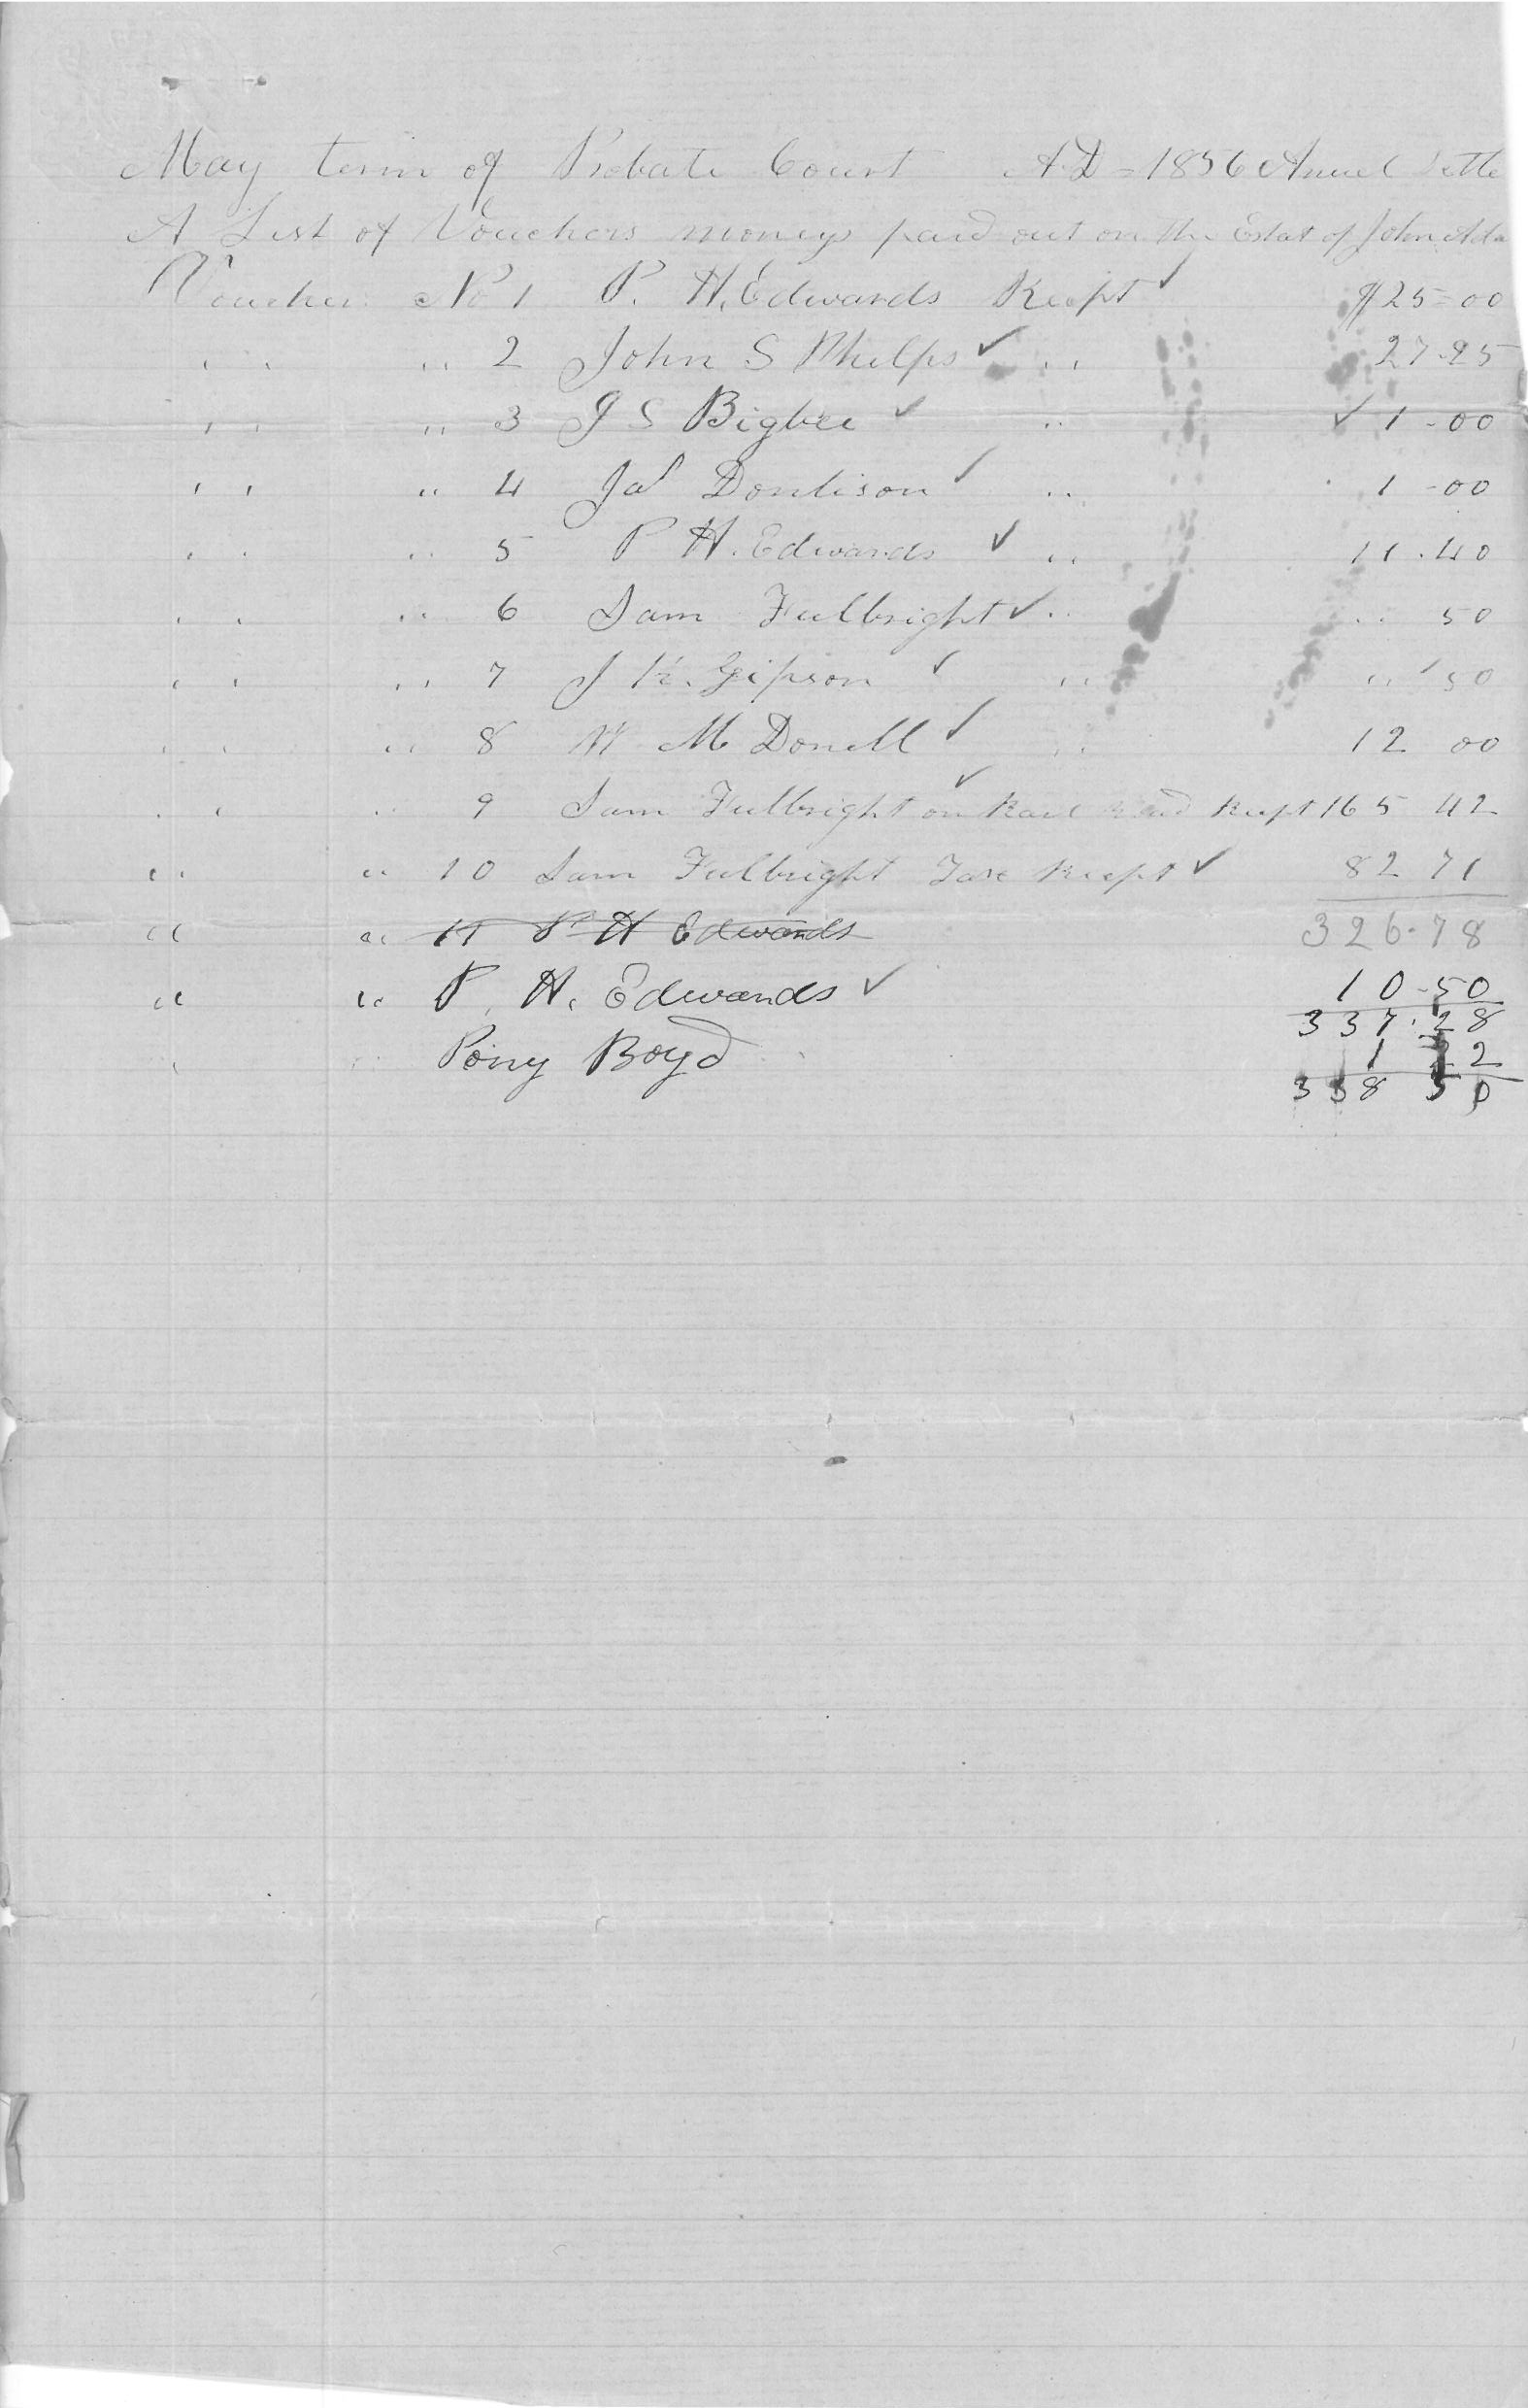 May term of Probate Court A.D = 1856 Anuel Settle
A List of Vouchers moneys paid out on the Estat of John Ada
Voucher No 1 P. H. Edwards Recpt ✓ $25=00
" " " 2 John S Phelps ✓ " 27.25
" " " 3 J S Bigbee ✓ " ✓ 1-00
" " " 4 Jas Donlison ✓ " 1-00
" " " 5 P H. Edwards ✓ " 11.40
" " " 6 Sam Fulbright ✓ " " 50
" " " 7 J K. Gipson ✓ " " 50
" " " 8 W McDonell ✓ " 12 00
" " " 9 Sam Fulbright ✓ on Rail Road Recpt 165 42
" " 10 Sam Fulbright Tax Recpt ✓ 82 71
" " 11 P H Edwards 326.78
" " P. H. Edwards ✓ 10-50
337.28
" " Pony Boyd 1 22
338 50